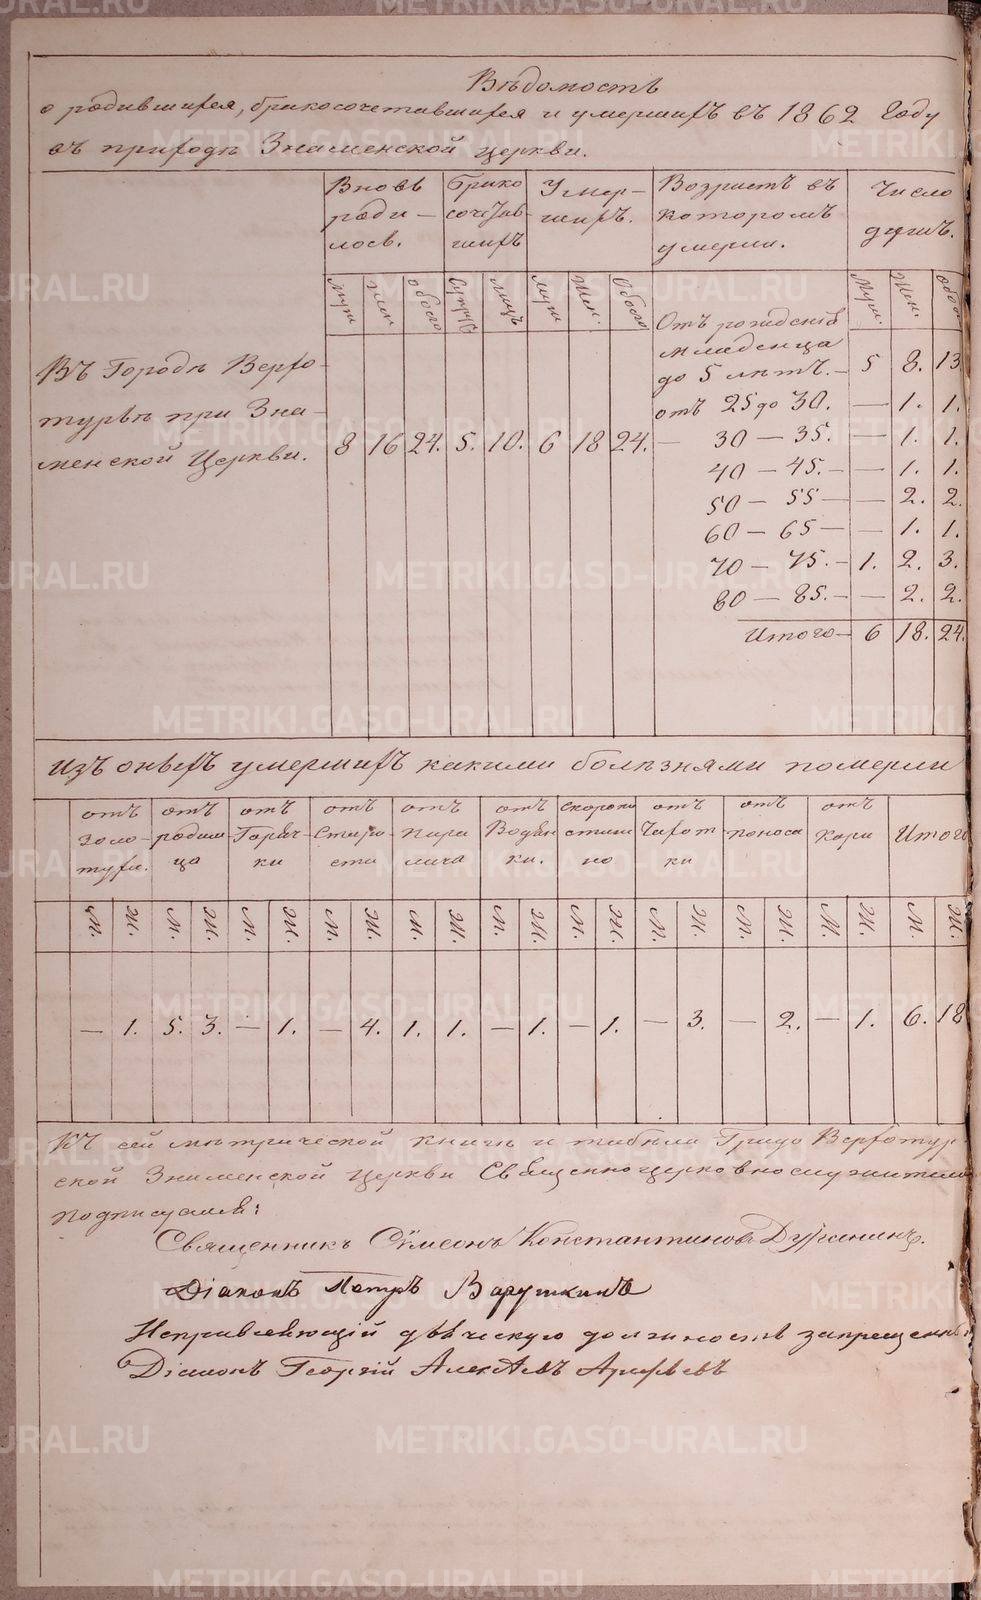 Вѣдомость
о родившихся, бракосочетавшихся и умершихъ въ 1862 Году
въ приходѣ Знаменской Церкви.
Вновь роди-лось.
Брако сочетав-шихъ
Умер-шихъ.
Возрастъ въ которомъ умерли.
Число душъ.
муж жен обоего Супруж лицъ муж Жен. Обоего Муж. Жен. Обоег
Въ Городѣ Верхо-
турьѣ при Зна-
менской Церкви.
8 16 24. 5. 10. 6 18 24.
Отъ рожденія
младенца
до 5 лѣтъ. — 5 8. 13
отъ 25 до 30. — 1. 1.
— 30 — 35. — 1. 1.
40 — 45. — — 1. 1.
50 — 55 — — 2. 2.
60 — 65 — — 1. 1.
70 — 75. — 1. 2. 3.
80 — 85. — — 2. 2.
Итого — 6 18. 24.
Изъ оныхъ умершихъ какими болѣзнями померли
отъ Золо-тухи.
отъ родим ца
отъ Горяч-ки
отъ Старо-сти
отъ Пара лича
отъ Водян ки.
скоропо стиж но
отъ Чахот ки
отъ поноса
отъ кори
Итого
М. Ж. М. Ж. М. Ж. М. Ж. М. Ж. М. Ж. М. Ж. М. Ж. М. Ж. М. Ж. М. Ж.
— 1. 5. 3. — 1. — 4. 1. 1. — 1. — 1. — 3. — 2. — 1. 6. 18
Къ сей метрической книгѣ и табели Градо Верхотур-
ской Знаменской Церкви Священноцерковнослужители
подписуемся:
Священникъ Сѵмеонъ Константиновъ
Діаконъ Петръ Варушкинъ
Исправляющій дьяческую должность запрещенный
Діаконъ Георгій Алексѣевъ Арефьевъ
METRIKI.GASO-URAL.RU